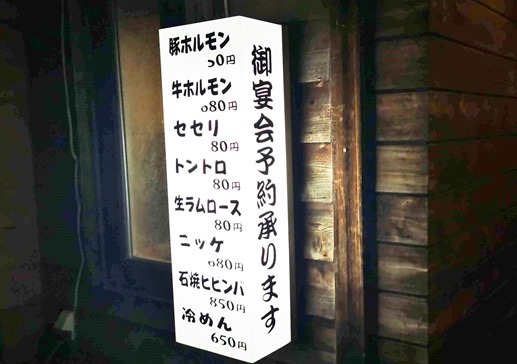 豚ホルモン
牛ホルモン
80円
セセリ
80円
トントロ
80円
生ラムロース
80円
ニッケ
80円
石焼ビビンバ
850円
冷めん
650円
御宴会予約承ります